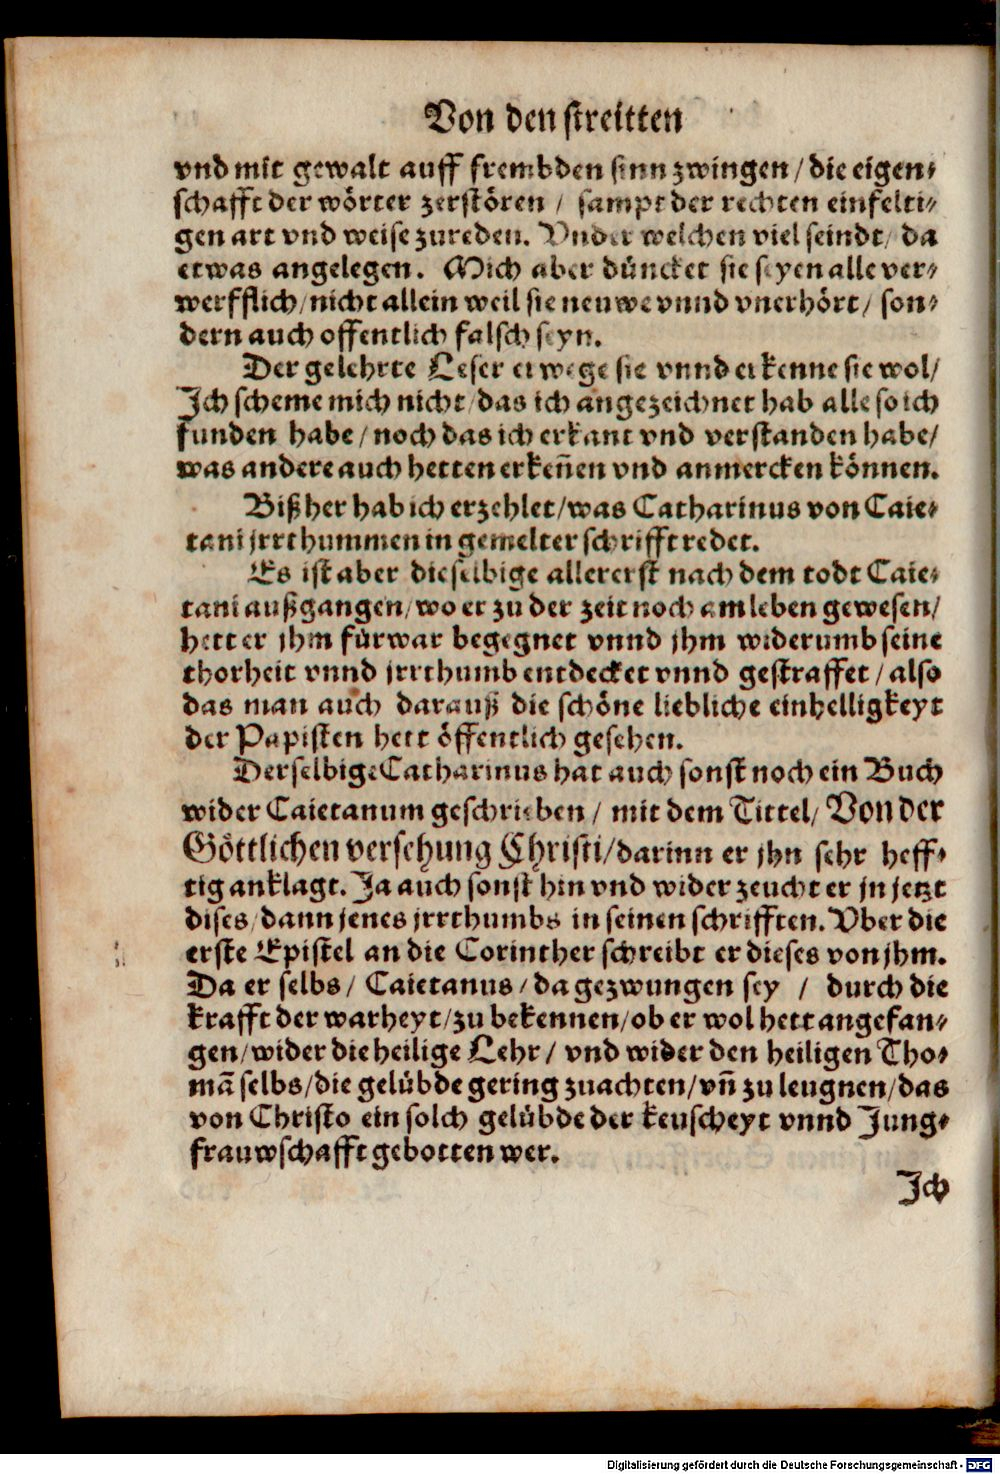 Von den streitten
vnd mit gewalt auff frembden sinn zwingen / die eigen⸗
schafft der wörter zerstören / sampt der rechten einfelti⸗
gen art vnd weise zureden. Vnder welchen viel seindt / da
etwas angelegen. Mich aber düncket sie seyen alle ver⸗
werfflich / nicht allein weil sie neuwe vnnd vnerhört / son⸗
dern auch offentlich falsch seyn.
Der gelehrte Leser erwege sie vnnd erkenne sie wol /
Jch scheme mich nicht / das ich angezeichnet hab alle so ich
funden habe / noch das ich erkant vnd verstanden habe /
was andere auch hetten erkeñen vnd anmercken können.
Bißher hab ich erzehlet / was Catharinus von Caie⸗
tani jrrthummen in gemelter schrifft redet.
Es ist aber dieselbige allererst nach dem todt Caie⸗
tani außgangen / wo er zu der zeit noch am leben gewesen /
hett er jhm fürwar begegnet vnnd jhm widerumb seine
thorheit vnnd jrrthumb entdecket vnnd gestraffet / also
das man auch darauß die schöne liebliche einhelligkeyt
der Papisten hett öffentlich gesehen.
Derselbige Catharinus hat auch sonst noch ein Buch
wider Caietanum geschrieben / mit dem Tittel / Von der
Göttlichen versehung Christi / darinn er jhn sehr heff⸗
tig anklagt. Ja auch sonst hin vnd wider zeucht er jn jetzt
dises / dann jenes jrrthumbs in seinen schrifften. Vber die
erste Epistel an die Corinther schreibt er dieses von jhm.
Da er selbs / Caietanus / da gezwungen sey / durch die
krafft der warheyt / zu bekennen / ob er wol hett angefan⸗
gen / wider die heilige Lehr / vnd wider den heiligen Tho⸗
mã selbs / die gelübde gering zuachten / vñ zu leugnen / das
von Christo ein solch gelübde der keuscheyt vnnd Jung⸗
frauwschafft gebotten wer.
Jch
Digitalisierung gefördert durch die Deutsche Forschungsgemeinschaft - DFG